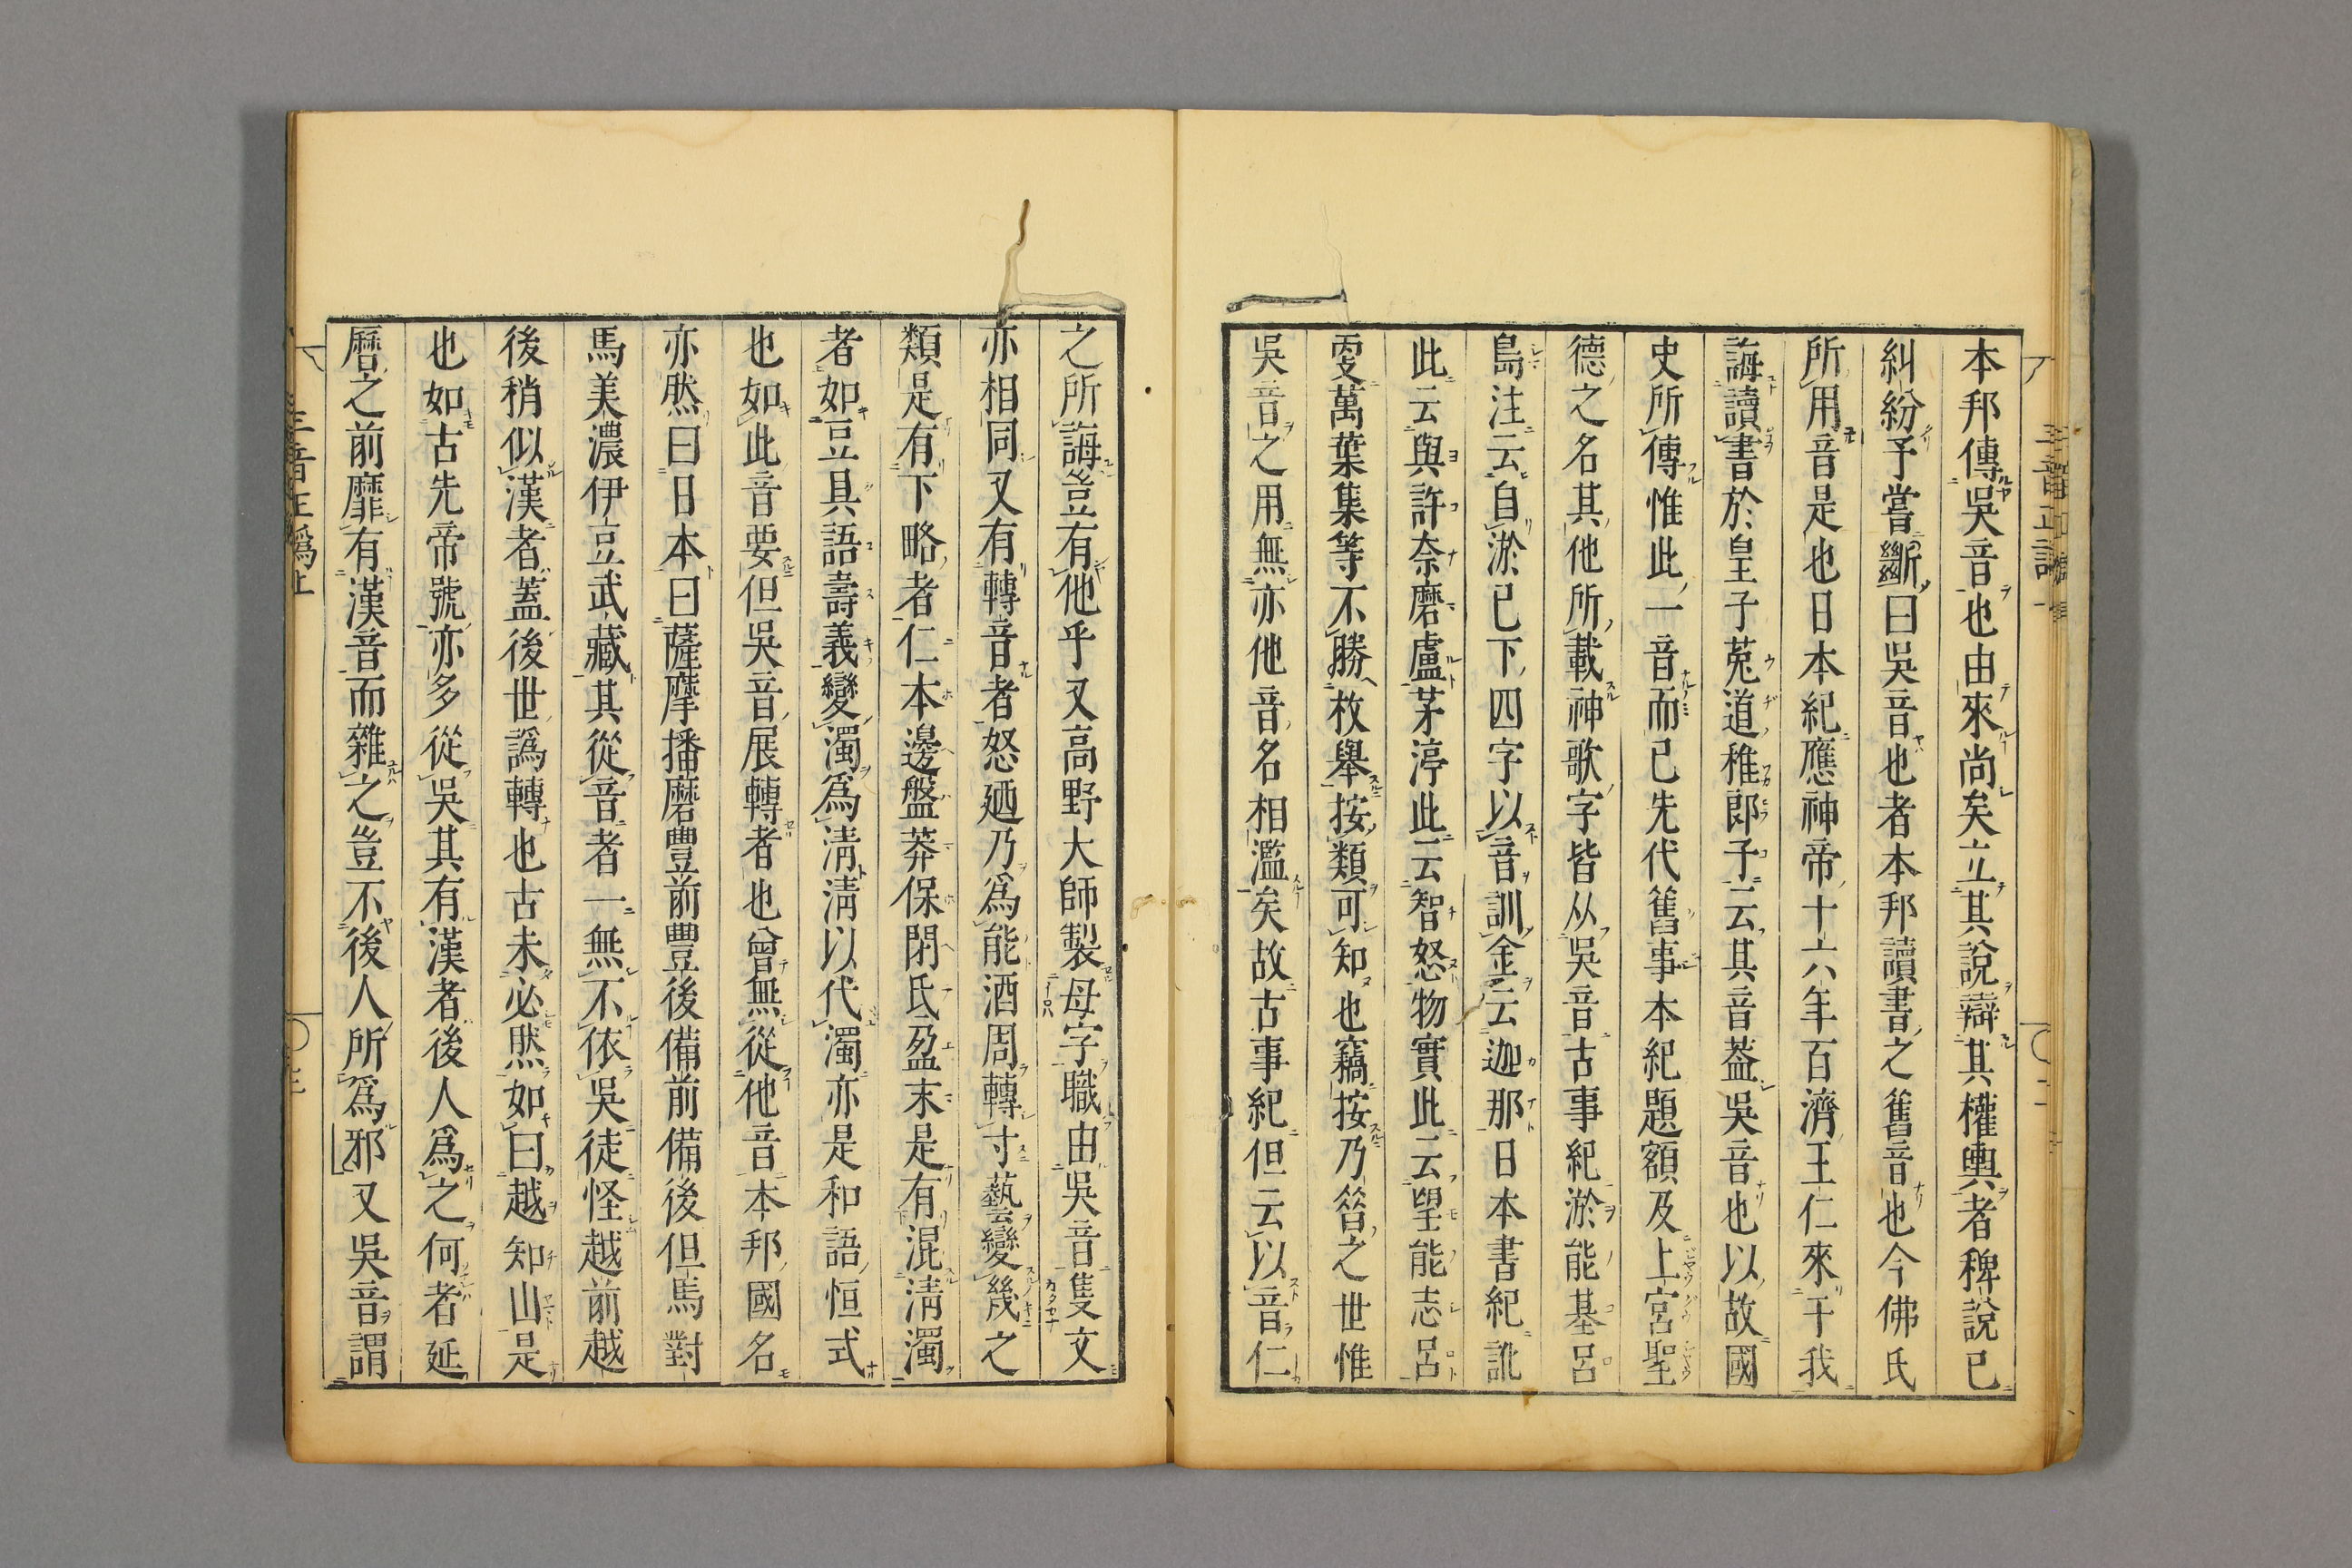 本邦傳吳音也由來尚矣立其說辯其權輿者稗說已
糾紛予嘗斷曰吳音也者本邦讀書之舊音也今佛氏
所用音是也日本紀應神帝十六年百濟王仁來于我
誨讀書於皇子菟道稚郎子云其音蓋吳音也以故國
史所傳惟此一音而已先代舊事本紀題額及上宮聖
德之名其他所載神歌字皆从吳音古事紀淤能基呂
島注云自淤已下四字以音訓金云迦那日本書紀訛
此云與許奈磨盧茅渟此云智怒物實此云望能志呂
雯萬葉集等不勝枚舉按類可知也竊按乃筥之世惟
吳音之用無亦他音名相濫矣故古事紀但云以音仁
之所誨豈有他乎又高野大師製母字職由吳音隻文
亦相同又有轉音者怒廼乃爲能酒周轉寸藝變幾之
類是有下略者仁本邊盤莽保閉氐盈末是有混淸濁
者如豆具語壽義變濁爲淸淸以代濁亦是和語恒式
也如此音要但吳音展轉者也曾無從他音本邦國名
亦然曰日本曰薩摩播磨豐前豐後備前備後但馬對
馬美濃伊豆武藏其從音者一無不依吳徒怪越前越
後稍似漢者蓋後世譌轉也古未必然如曰越知山是
也如古先帝號亦多從吳其有漢者後人爲之何者延
曆之前靡有漢音而雜之豈不後人所爲邪又吳音謂